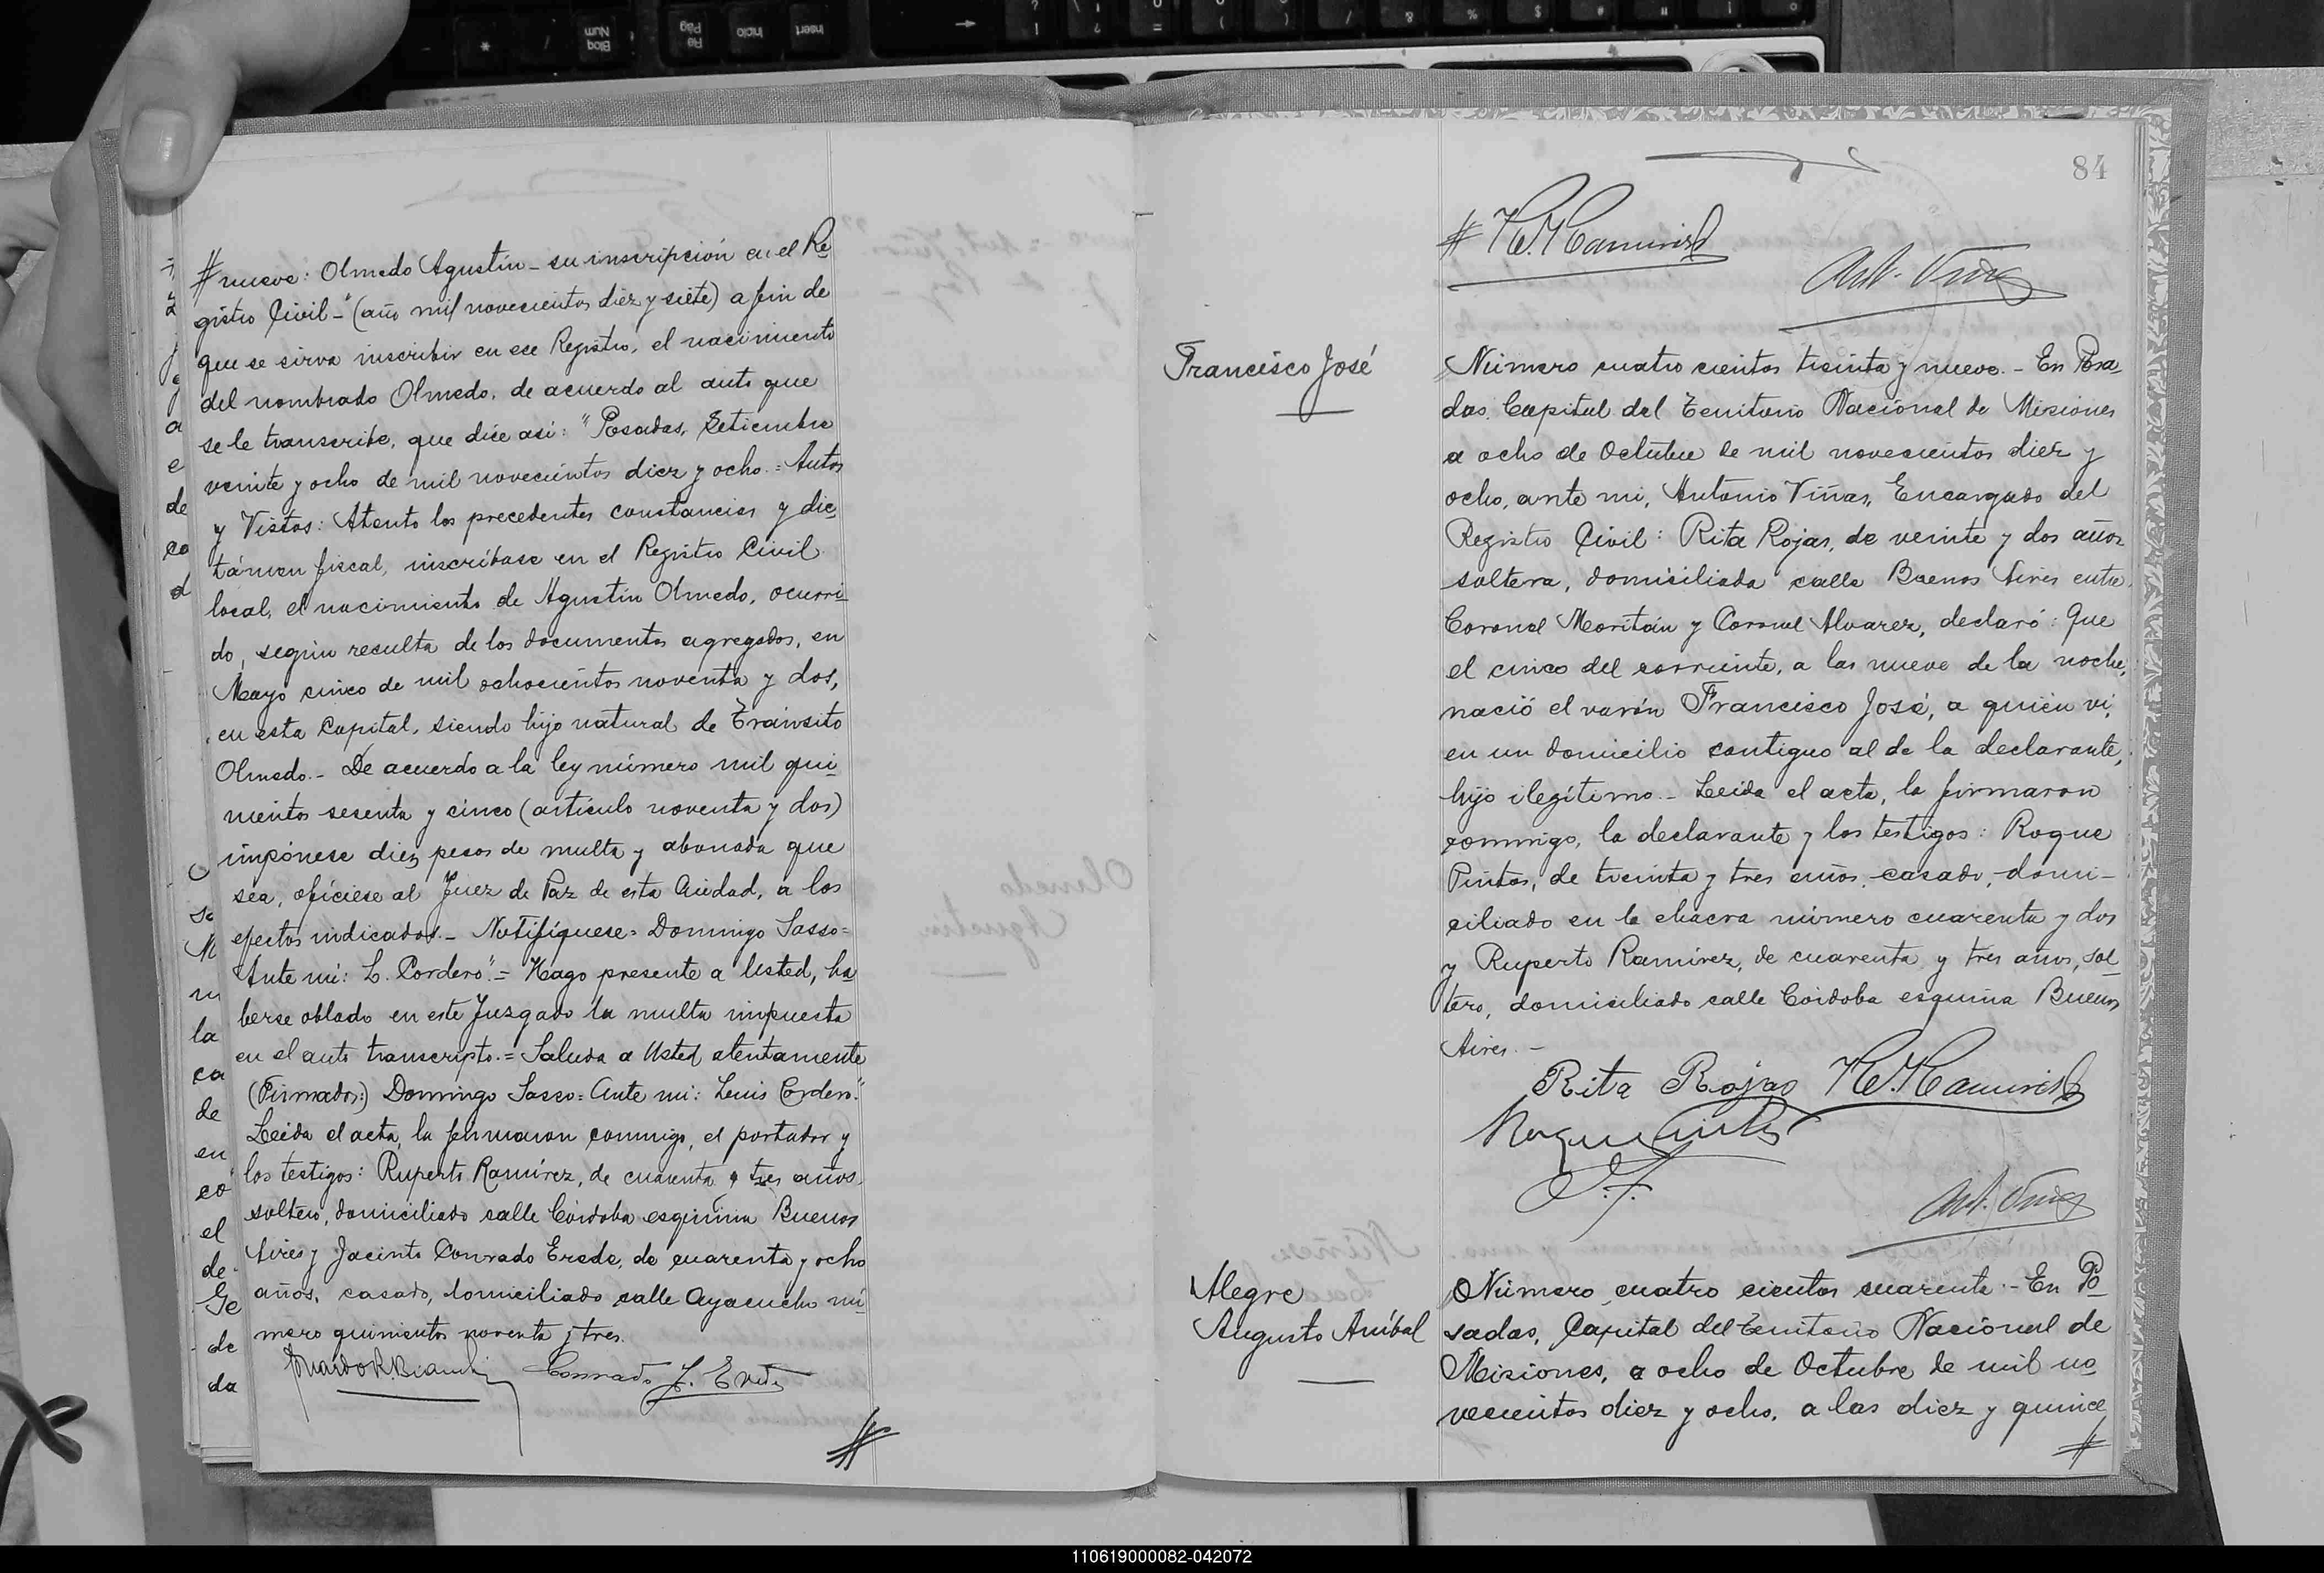 # nueve: Olmedo Agustín - su inscripción en el Re
gistro Civil - " (año mil novecientos diez y siete) a fin de
que se sirva inscribir en ese Registro, el nacimiento
del nombrado Olmedo, de acuerdo al auto que
se le transcribe, que dice asi: "Posadas, Setiembre
veinte y ocho de mil novecientos diez y ocho. = Autos
y Vistos: Atento los precedentes constancias y dic
támen fiscal, inscríbase en el Registro Civil
local, el nacimiento de Agustín Olmedo, ocurri-
do, según resulta de los documentos agregados, en
Mayo cinco de mil ochocientos noventa y dos,
en esta Capital, siendo hijo natural de Tránsito
Olmedo. - De acuerdo a la ley número mil qui-
nientos sesenta y cinco (artículo noventa y dos)
impónese diez pesos de multa y abonada que
sea, ofíciese al Juez de Paz de esta Ciudad, a los
efectos indicados. - Notifíquese = Domingo Sasso =
Ante mi: L. Cordero". = Hago presente a Usted, ha
berse oblado en este Juzgado la multa impuesta
en el auto transcripto. = Saluda a Usted atentamente
(Firmados:) Domingo Sasso = Ante mi: Luis Cordero."
Leida el acta, la firmaron conmigo, el portador y
los testigos: Ruperto Ramírez, de cuarenta y tres años,
soltero, domiciliado calle Córdoba esquina Buenos
Aires y Jacinto Conrado Erede, de cuarenta y ocho
años, casado, domiciliado calle Ayacucho nú-
mero quinientos noventa y tres.
Conrado J. Erede
#
84
#
Ant. Viñas
Francisco José
Número cuatro cientos treinta y nueve. - En Posa-
das, Capital del Territorio Nacional de Misiones
a ocho de Octubre de mil novecientos diez y
ocho, ante mi, Antonio Viñas, Encargado del
Registro Civil: Rita Rojas, de veinte y dos años
soltera, domisiliada calle Buenos Aires entre
Coronel Moritán y Coronel Alvarez, declaró: Que
el cinco del corriente, a las nueve de la noche,
nació el varón Francisco José, a quién vi,
en un domicilio contiguo al de la declarante,
hijo ilegítimo. - Leida el acta, la firmaron
conmigo, la declarante y los testigos: Roque
Pintos, de treinta y tres años, casado, domi-
ciliado en la chacra número cuarenta y dos
y Ruperto Ramírez, de cuarenta y tres años, sol
tero, domiciliado calle Córdoba esquina Buenos
Aires. -
Rita Rojas
Roque Pintos
Ant. Viñas
Alegre
Augusto Aníbal
Número cuatro cientos cuarenta. - En Po
sadas, Capital del Territorio Nacional de
Misiones, a ocho de Octubre de mil no
vecientos diez y ocho, a las diez y quince
#
110619000082-042072